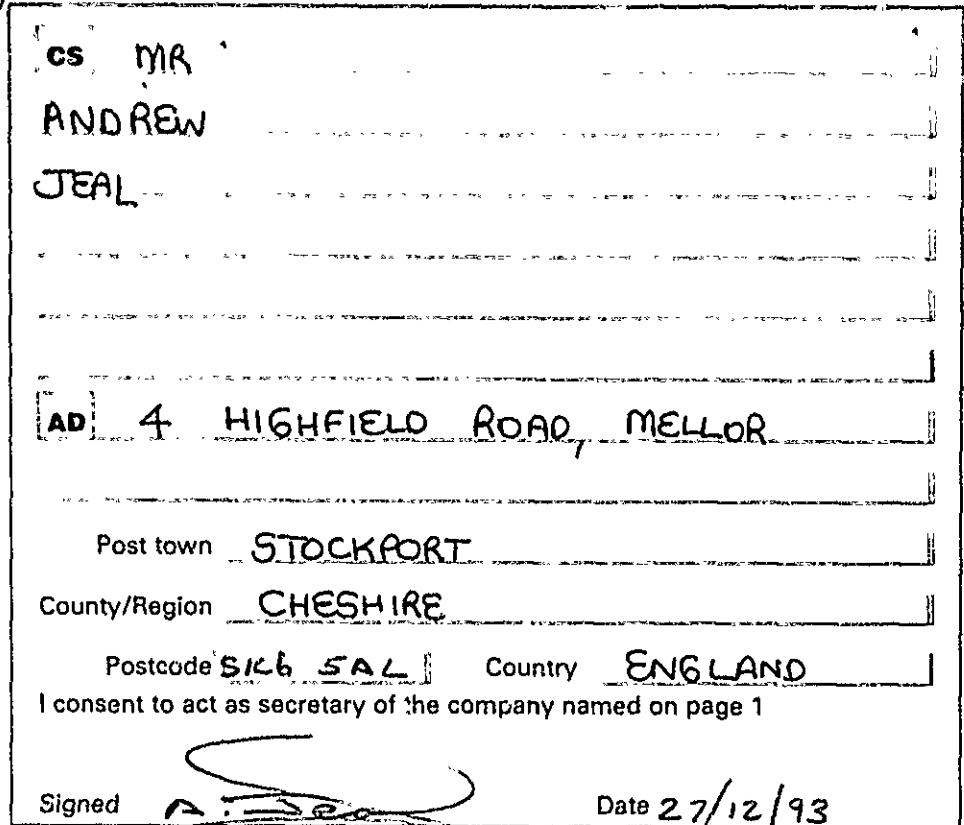 CS MR
ANDREW
JEAL
AD 4 HIGHFIELD ROAD, MELLOR
Post town STOCKPORT
County/Region CHESHIRE
Postcode SK6 5AL Country ENGLAND
I consent to act as secretary of the company named on page 1
Signed A. Jeal Date 27/12/93